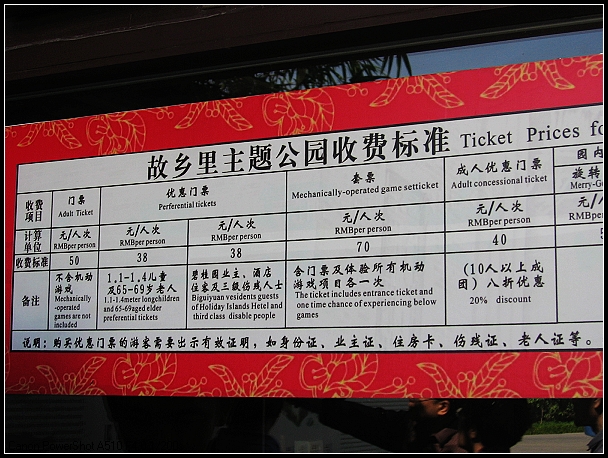 故乡里主题公园收费标准 Ticket Prices fo
收费项目
门票
Adult Ticket
优惠门票
Perferential tickets
套票
Mechanically-operated game setticket
成人优惠门票
Adult concessional ticket
园内
旋转
Merry-G
计算单位
元/人次
RMBper person
元/人次
RMBper person
元/人次
RMBper person
元/人次
RMBper person
元/人次
RMBper person
收费标准
50
38
38
70
40
备注
不含机动
游戏
Mechanically
-operated
games are not
included
1.1-1.4儿童
及65-69岁老人
1.1-1.4meter longchildren
and 65-69aged elder
preferential tickets
碧桂园业主、酒店
住客及三级伤残人士
Biguiyuan vesidents guests
of Holiday Islands Hetel and
third class disable people
含门票及体验所有机动
游戏项目各一次
The ticket includes entrance ticket and
one time chance of experiencing below
games
(10人以上成
团)八折优惠
20% discount
说明：购买优惠门票的游客需要出示有效证明，如身份证、业主证、住房卡、伤残证、老人证等。